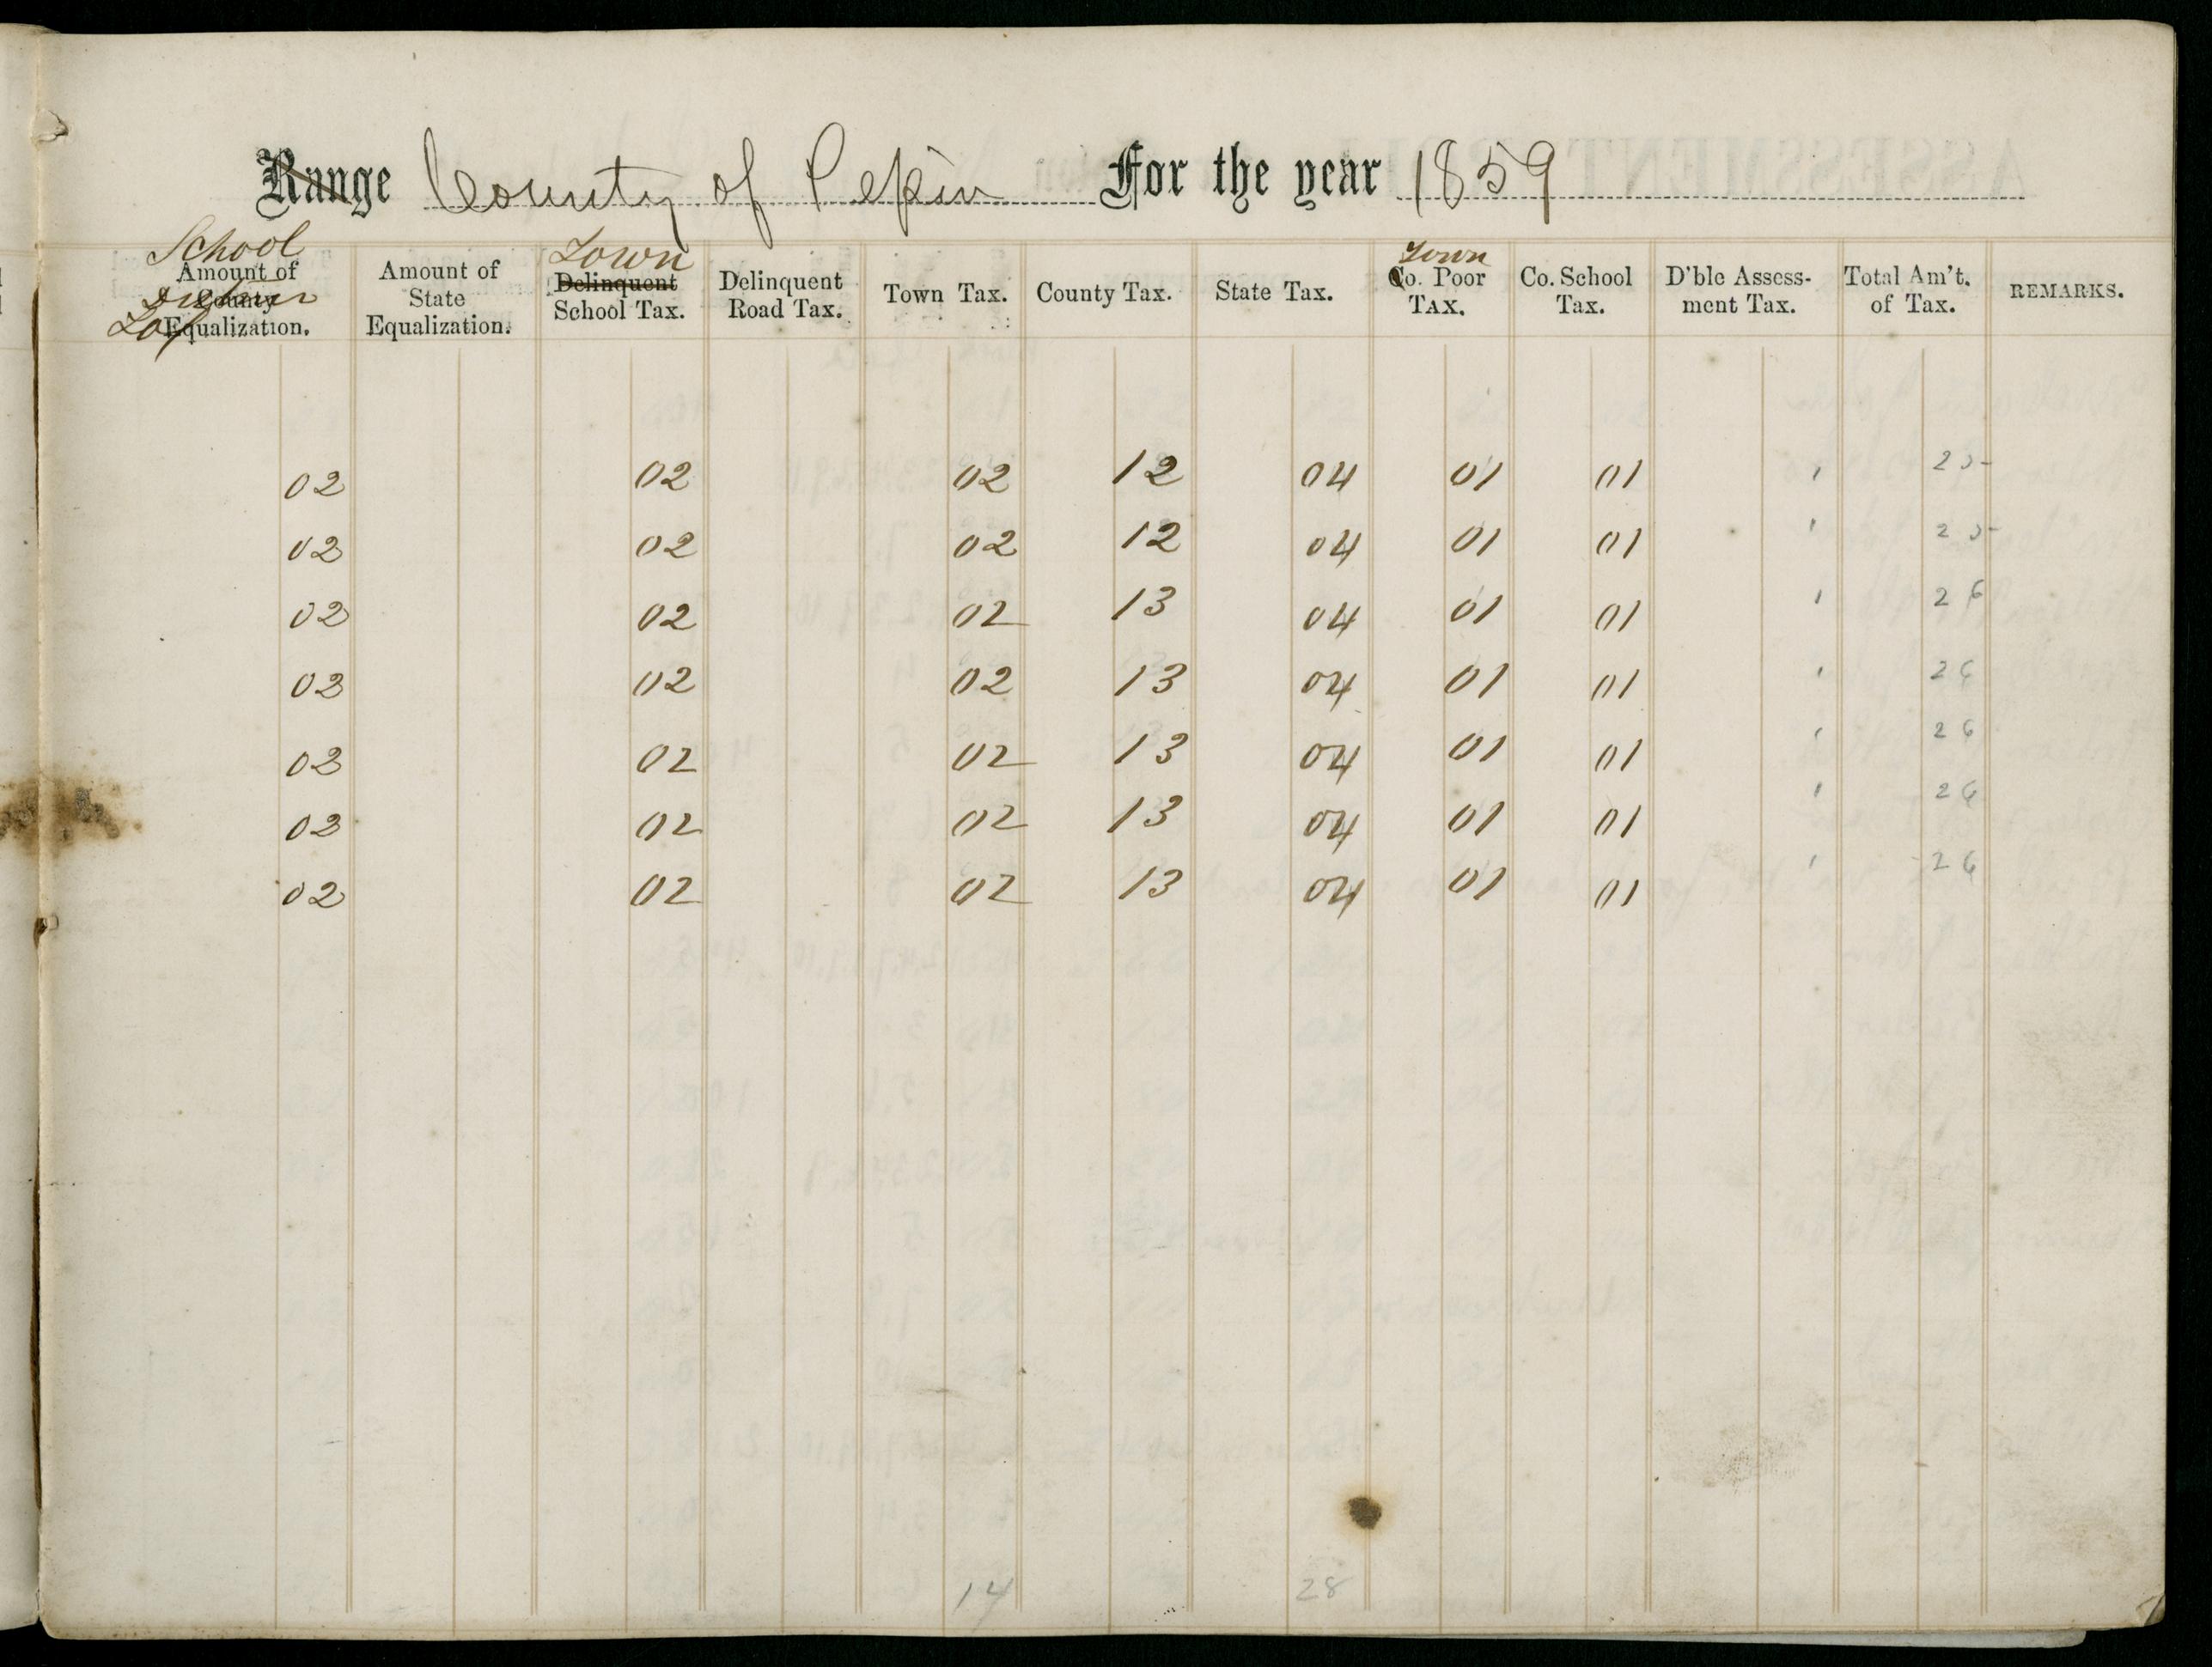 Range County of Pepin For the year 1859
School Town Town
Amount of County Equalization. Amount of State Equalization. Delinquent School Tax. Delinquent Road Tax. Town Tax. County Tax. State Tax. Co. Poor TAX. Co. School Tax. D'ble Assess-ment Tax. Total Am't. of Tax. REMARKS.
02 02 02 12 04 01 01 25
02 02 02 12 04 01 01 25
02 02 02 13 04 01 01 26
02 02 02 13 04 01 01 26
02 02 02 13 04 01 01 26
02 02 02 13 04 01 01 26
02 02 02 13 04 01 01 26
14 28